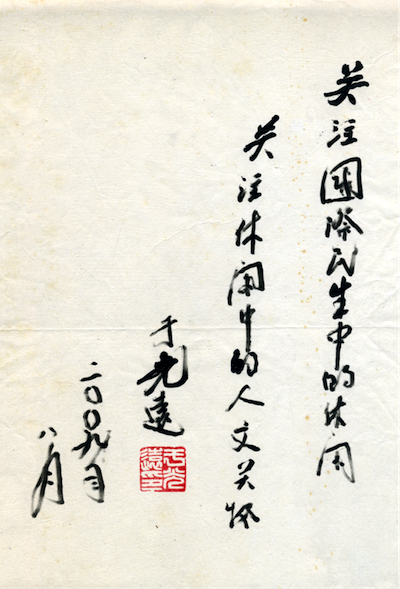 关注國际民生中的休闲
关注休闲中的人文关怀
于光遠
二〇〇九年
八月